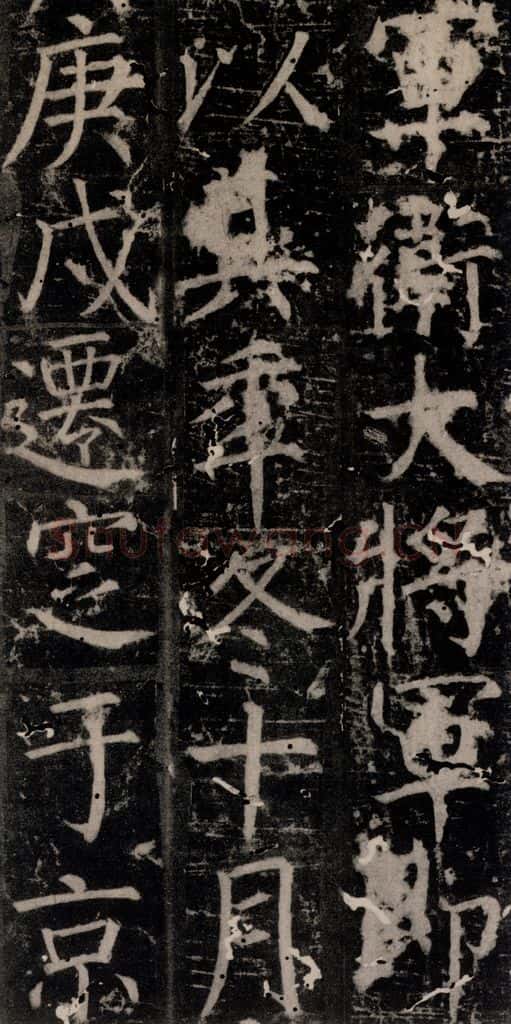 軍衛大將軍即
以其年冬十月
庚戌遷窆于京
shufawang.cn